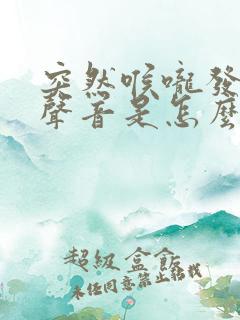 突然喉嚨發
聲音是怎麼
超級盒飯
未经同意禁止转载